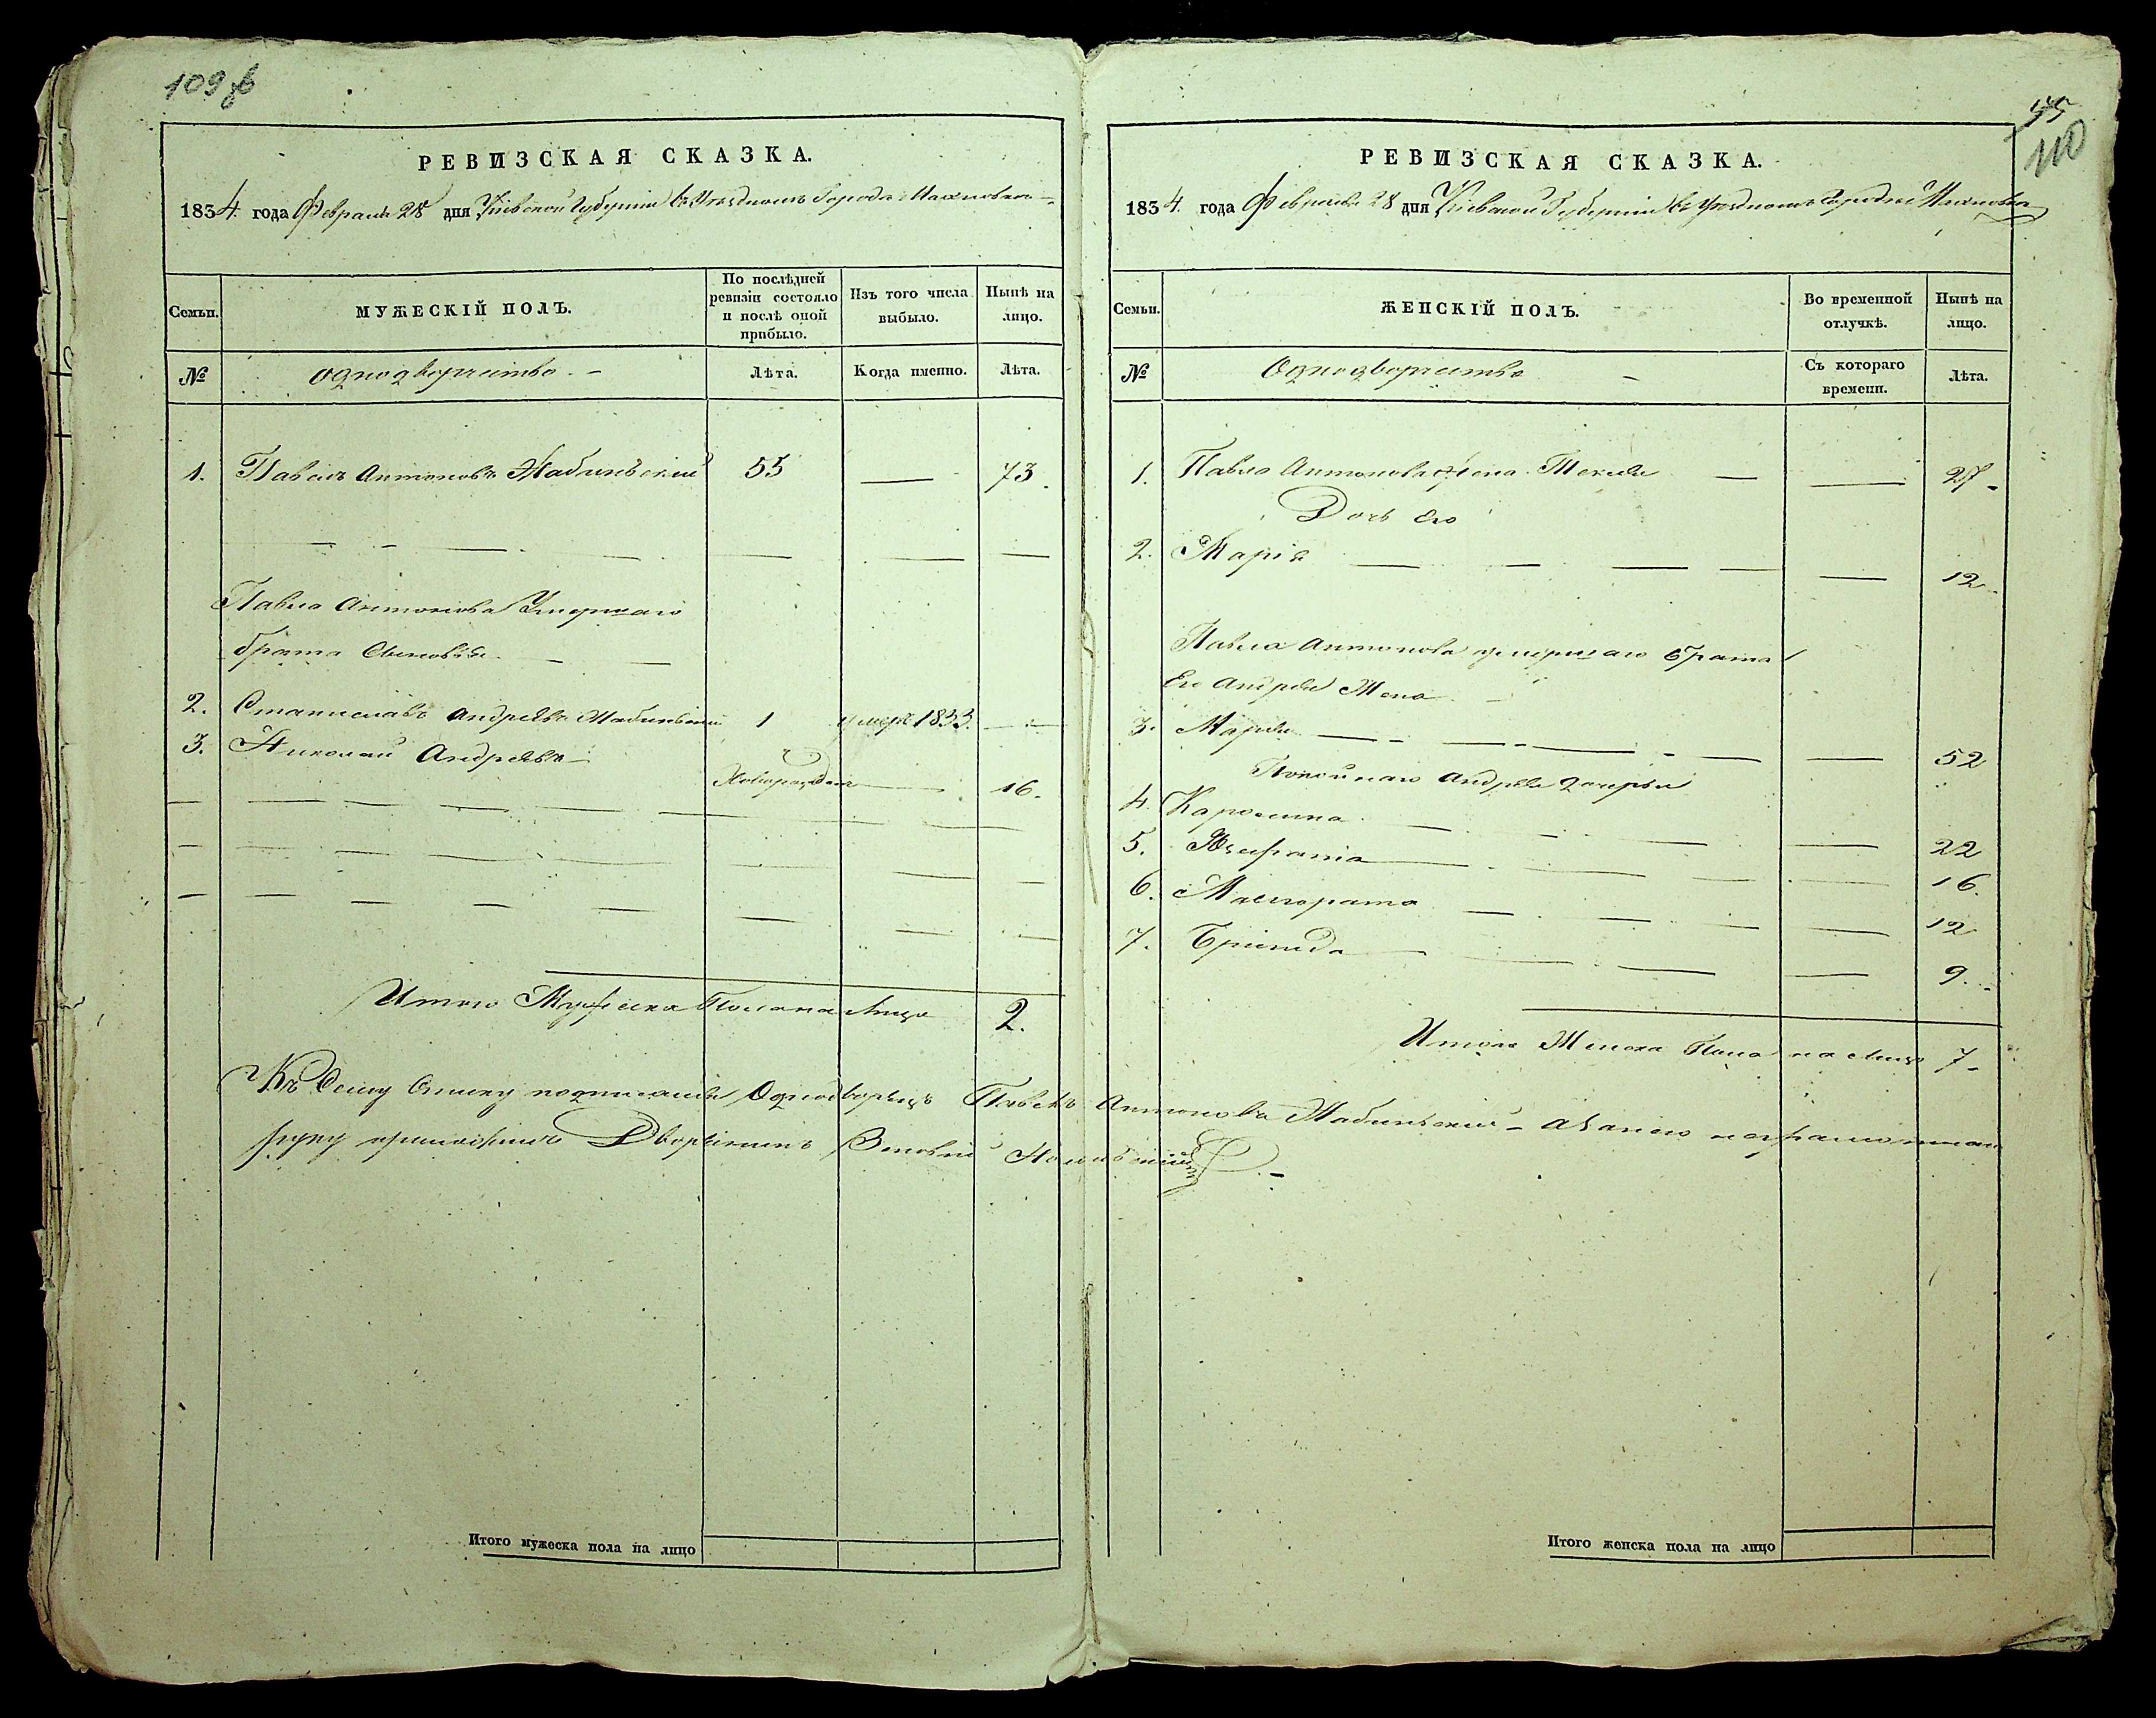 109 об
РЕВИЗСКАЯ СКАЗКА.
1834 года Февраля 28 дня Кіевской Губерніи въ Уездномъ Городе Махновке
Семьи.
МУЖЕСКІЙ ПОЛЪ.
По послѣдней ревизіи состояло и послѣ оной прибыло.
Изъ того числа выбыло.
Нынѣ на лицо.
№
Однодворчество. –
Лѣта.
Когда именно.
Лѣта.
1. Павелъ Антоновъ 55 — 73.
Павла Антонова Умершаго
брата Сыновья
2. Станиславъ Андреевъ 1 умеръ 1833.
3. Николай Андреевъ
Новорожден 16.
Итого Мужеска Пола на Лицо 2.
Къ Сему Списку Однодворецъ Павелъ Антоновъ а за него неграмотнаго
руку приложилъ Дворянинъ
Итого мужеска пола на лицо
55
110
РЕВИЗСКАЯ СКАЗКА.
1834 года Февраля 28 дня Кіевской Губерніи въ Уездномъ Городе Махновке
Семьи.
ЖЕНСКІЙ ПОЛЪ.
Во временной отлучкѣ.
Нынѣ на лицо.
№
Однодворчество –
Съ котораго времени.
Лѣта.
1. Павла Антонова Жена Текля — 27
Дочь Его
2. Марія — 12
Павла Антонова умершаго брата
Его Андрея Жена
3. — 52
Покойнаго Андрея дочерьи
4. Каролина — 22
5. — 16.
6. — 12
7. Бригида — 9.
Итого Женска Пола на Лицо 7
Итого женска пола на лицо